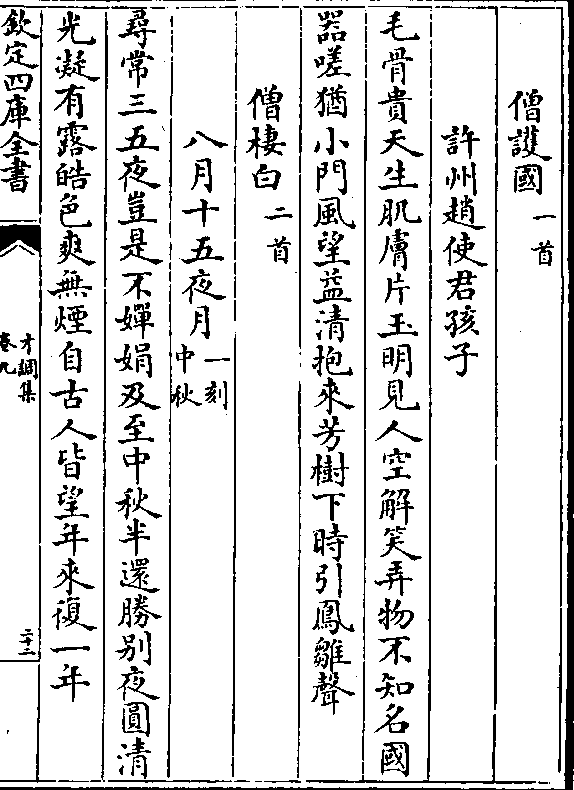 僧護國一首
許州趙使君孩子
毛骨貴天生肌膚片玉明見人空解笑弄物不知名國
器嗟猶小門風望益清抱來芳樹下時引鳳雛聲
僧棲白二首
八月十五夜月一刻中秋
尋常三五夜豈是不嬋娟及至中秋半還勝别夜圓清
光凝有露皓色爽無煙自古人皆望年來復一年
欽定四庫全書
才調集
卷九
二十二